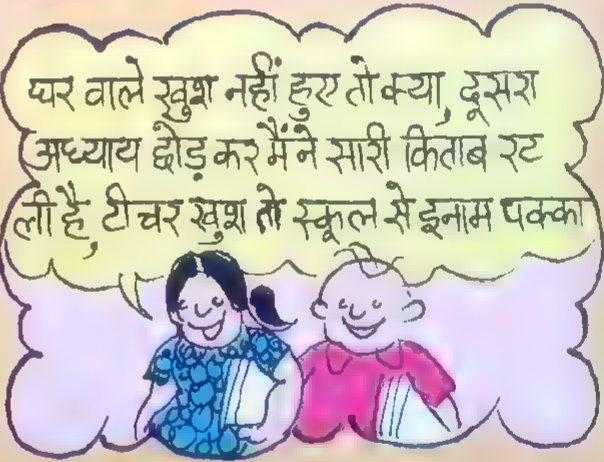 घर वाले खुश नहीं हुए तो क्या, दूसरा
अध्याय छोड़ कर मैं ने सारी किताब रट
ली है, टीचर खुश तो स्कूल से इनाम पक्का